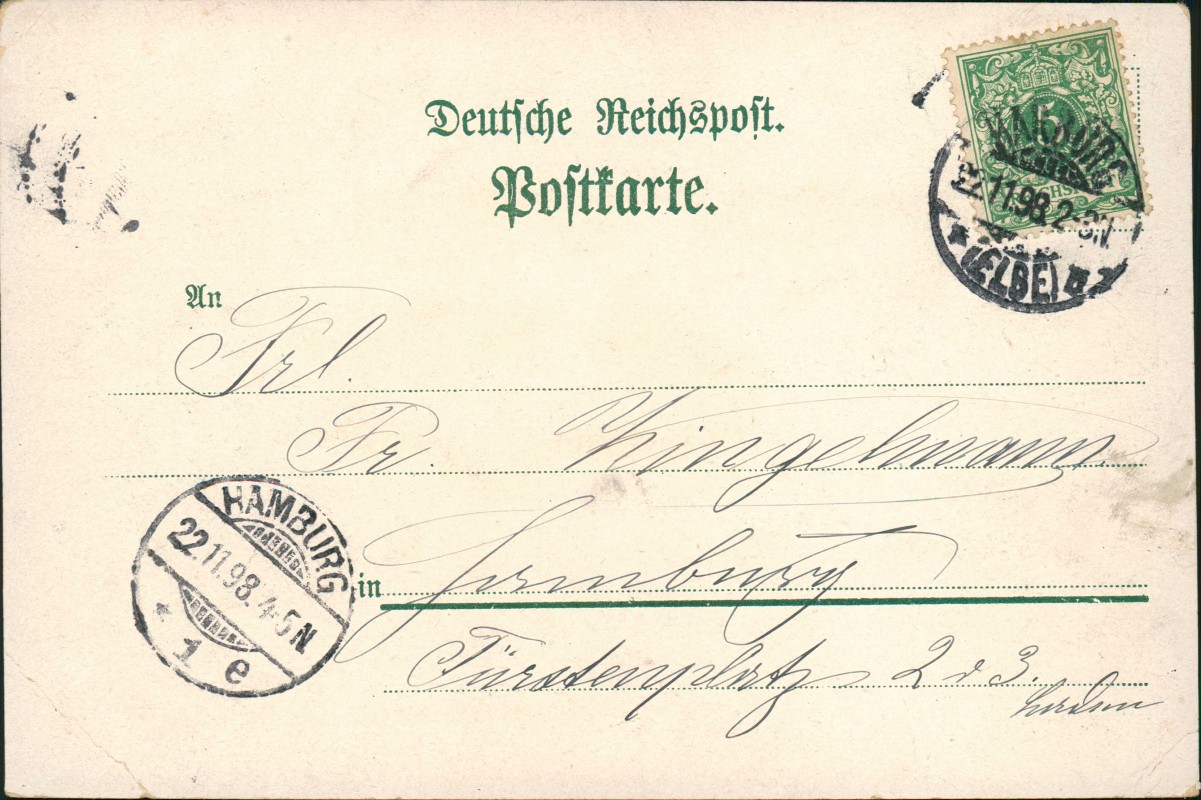 Deutsche Reichspost.
Postkarte.
5
HARBURG
22.11.98.2-3N.
* (ELBE) *
An
Frl.
Fr. Zingelmann
HAMBURG
22.11.98.4-5N
* 1 e
in Hamburg
Fürstenplatz 2 d 3.